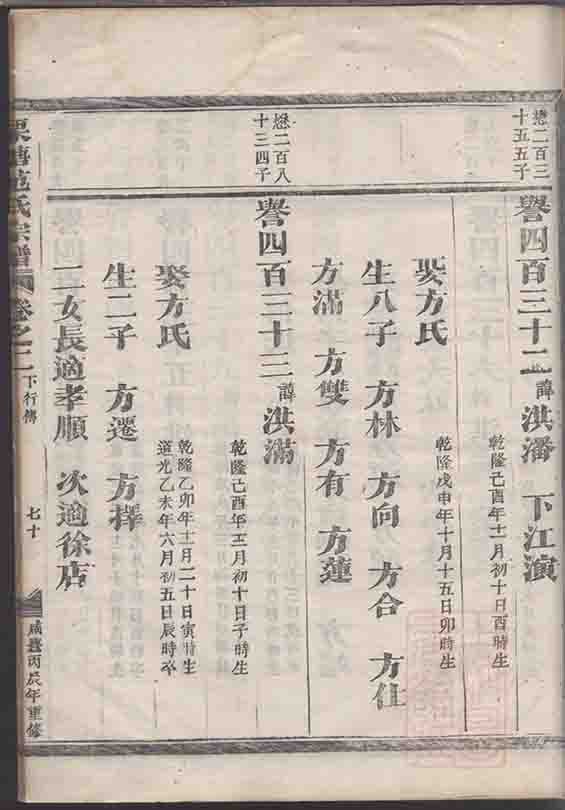 懋二百三
十五五子
譽四百三十二諱洪潘 下江演
乾隆己酉年十一月初十日酉時生
娶方氏
乾隆戊申年十月十五日卯時生
生八子 方林 方向 方合 方仕
方滿 方雙 方有 方蓮
懋二百八
十三四子
譽四百三十三諱洪滿
乾隆己酉年五月初十日子時生
娶方氏
乾隆乙卯年十二月二十日寅時生
道光乙未年六月初五日辰時卒
生二子 方遷 方擇
二女長適孝順 次適徐店
氏宗譜 卷之二 下行傳 七十 咸豐丙辰年重修